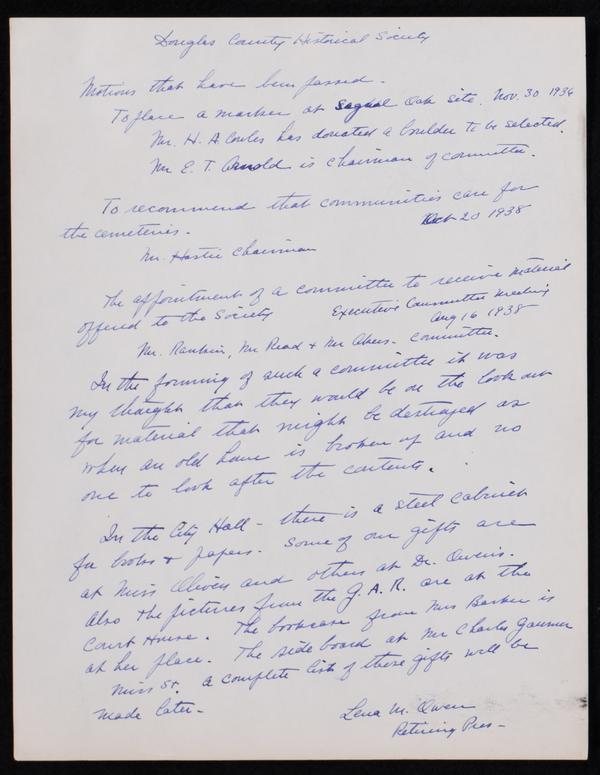 Douglas County Historical Society
Motions that have been passed -
To place a marker at Sagnal Oak site. Nov. 30 1936
Mr. H. A. Cowles has donated a boulder to be selected.
Mr E. T. Arnold is chairman of committee.
To recommend that communities care for
the cemeteries. Oct 20 1938
Mr. Hastie Chairman
The appointment of a committee to receive material
offered to the Society Executive Committee meeting
Aug 16 1938
Mr. Rankin, Mr Read + Mr Akers - Committee.
In the forming of such a committee it was
my thought that they would be on the look out
for material that might be destroyed as
when an old home is broken up and no
one to look after the contents.
In the City Hall - there is a steel cabinet
for books + papers. Some of our gifts are
at Miss Olivers and others at Dr. Owens.
Also the pictures from the G. A. R. are at the
Court House. The bookcase from Mrs Barker is
at her place. The side board at Mr Charles
Miss St. A complete list of these gifts will be
made later -
Lena M. Owen
Retiring Pres -